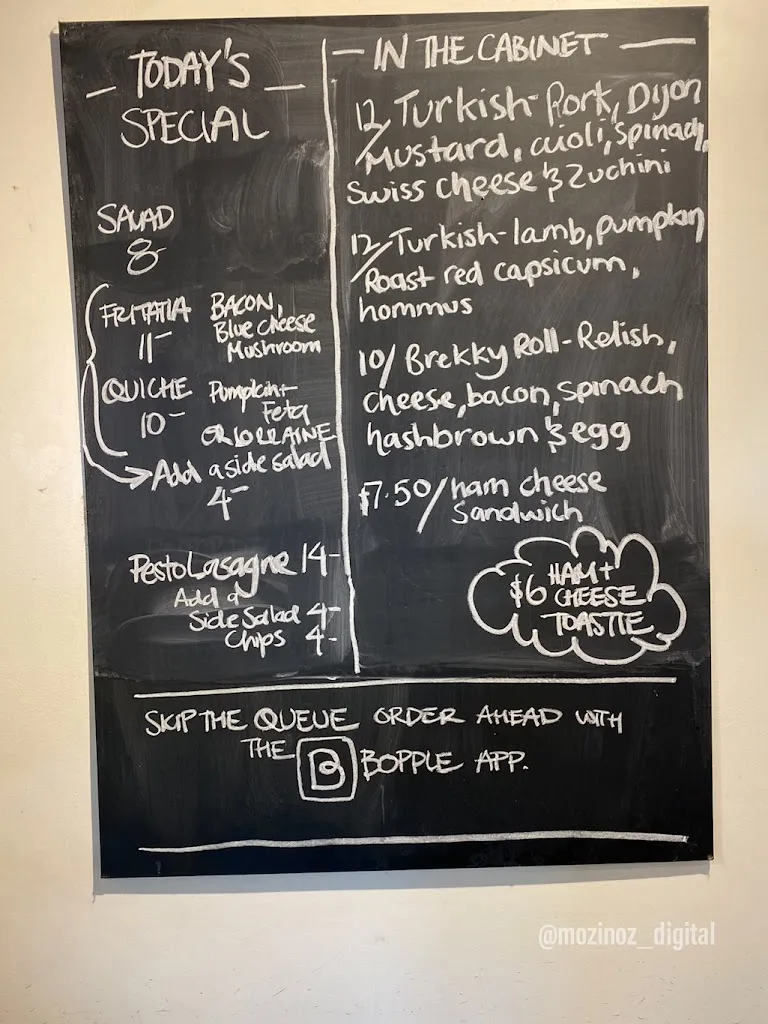 TODAY'S
SPECIAL
SALAD
8-
FRITATTA BACON,
11- Blue Cheese
Mushroom
QUICHE Pumpkin+
10- Feta
OR LORRAINE
Add a side salad
4-
Pesto Lasagne 14-
Add a
Side Salad 4-
Chips 4-
IN THE CABINET
12/ Turkish-Pork, Dijon
Mustard, aioli, spinach,
Swiss cheese & Zuchini
12/ Turkish-lamb, pumpkin
Roast red capsicum,
hommus
10/ Brekky Roll-Relish,
cheese, bacon, spinach
hashbrown & egg
$7.50/ ham cheese
Sandwich
HAM+
$6 CHEESE
TOASTIE
SKIP THE QUEUE ORDER AHEAD WITH
THE B BOPPLE APP.
@mozinoz_digital